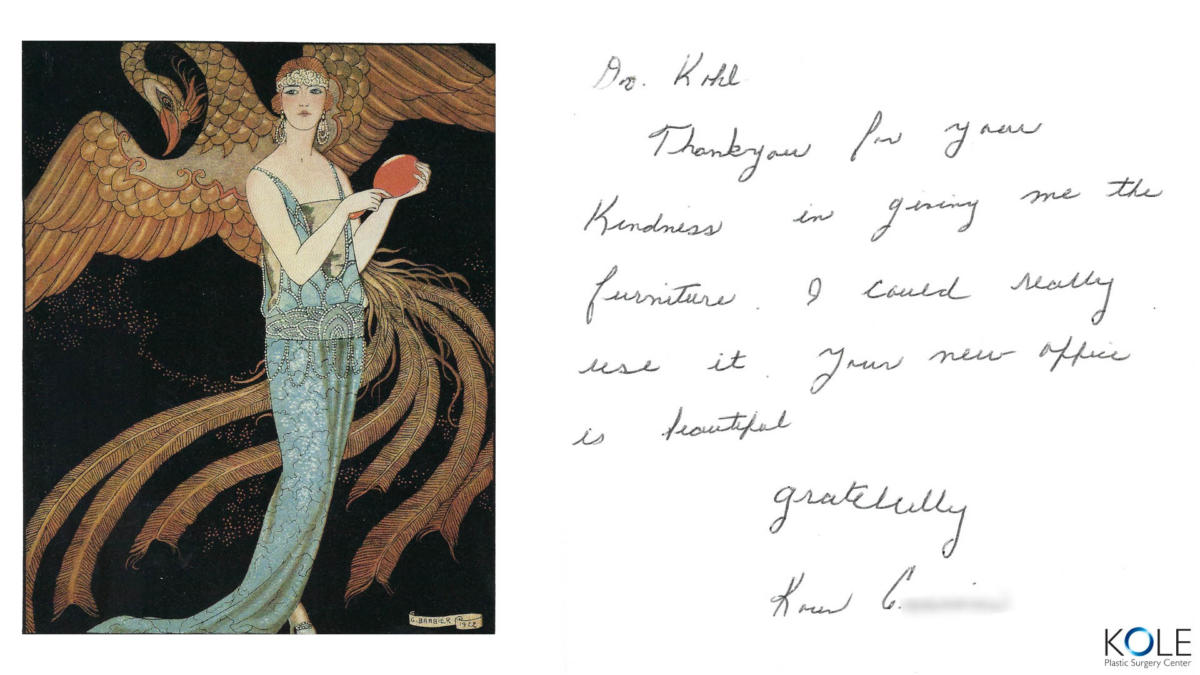 G. BARBIER
1922
Dr. Kohl
Thankyou for your
Kindness in giving me the
furniture. I could really
use it. Your new office
is beautiful
gratefully
Karen C.
KOLE
Plastic Surgery Center